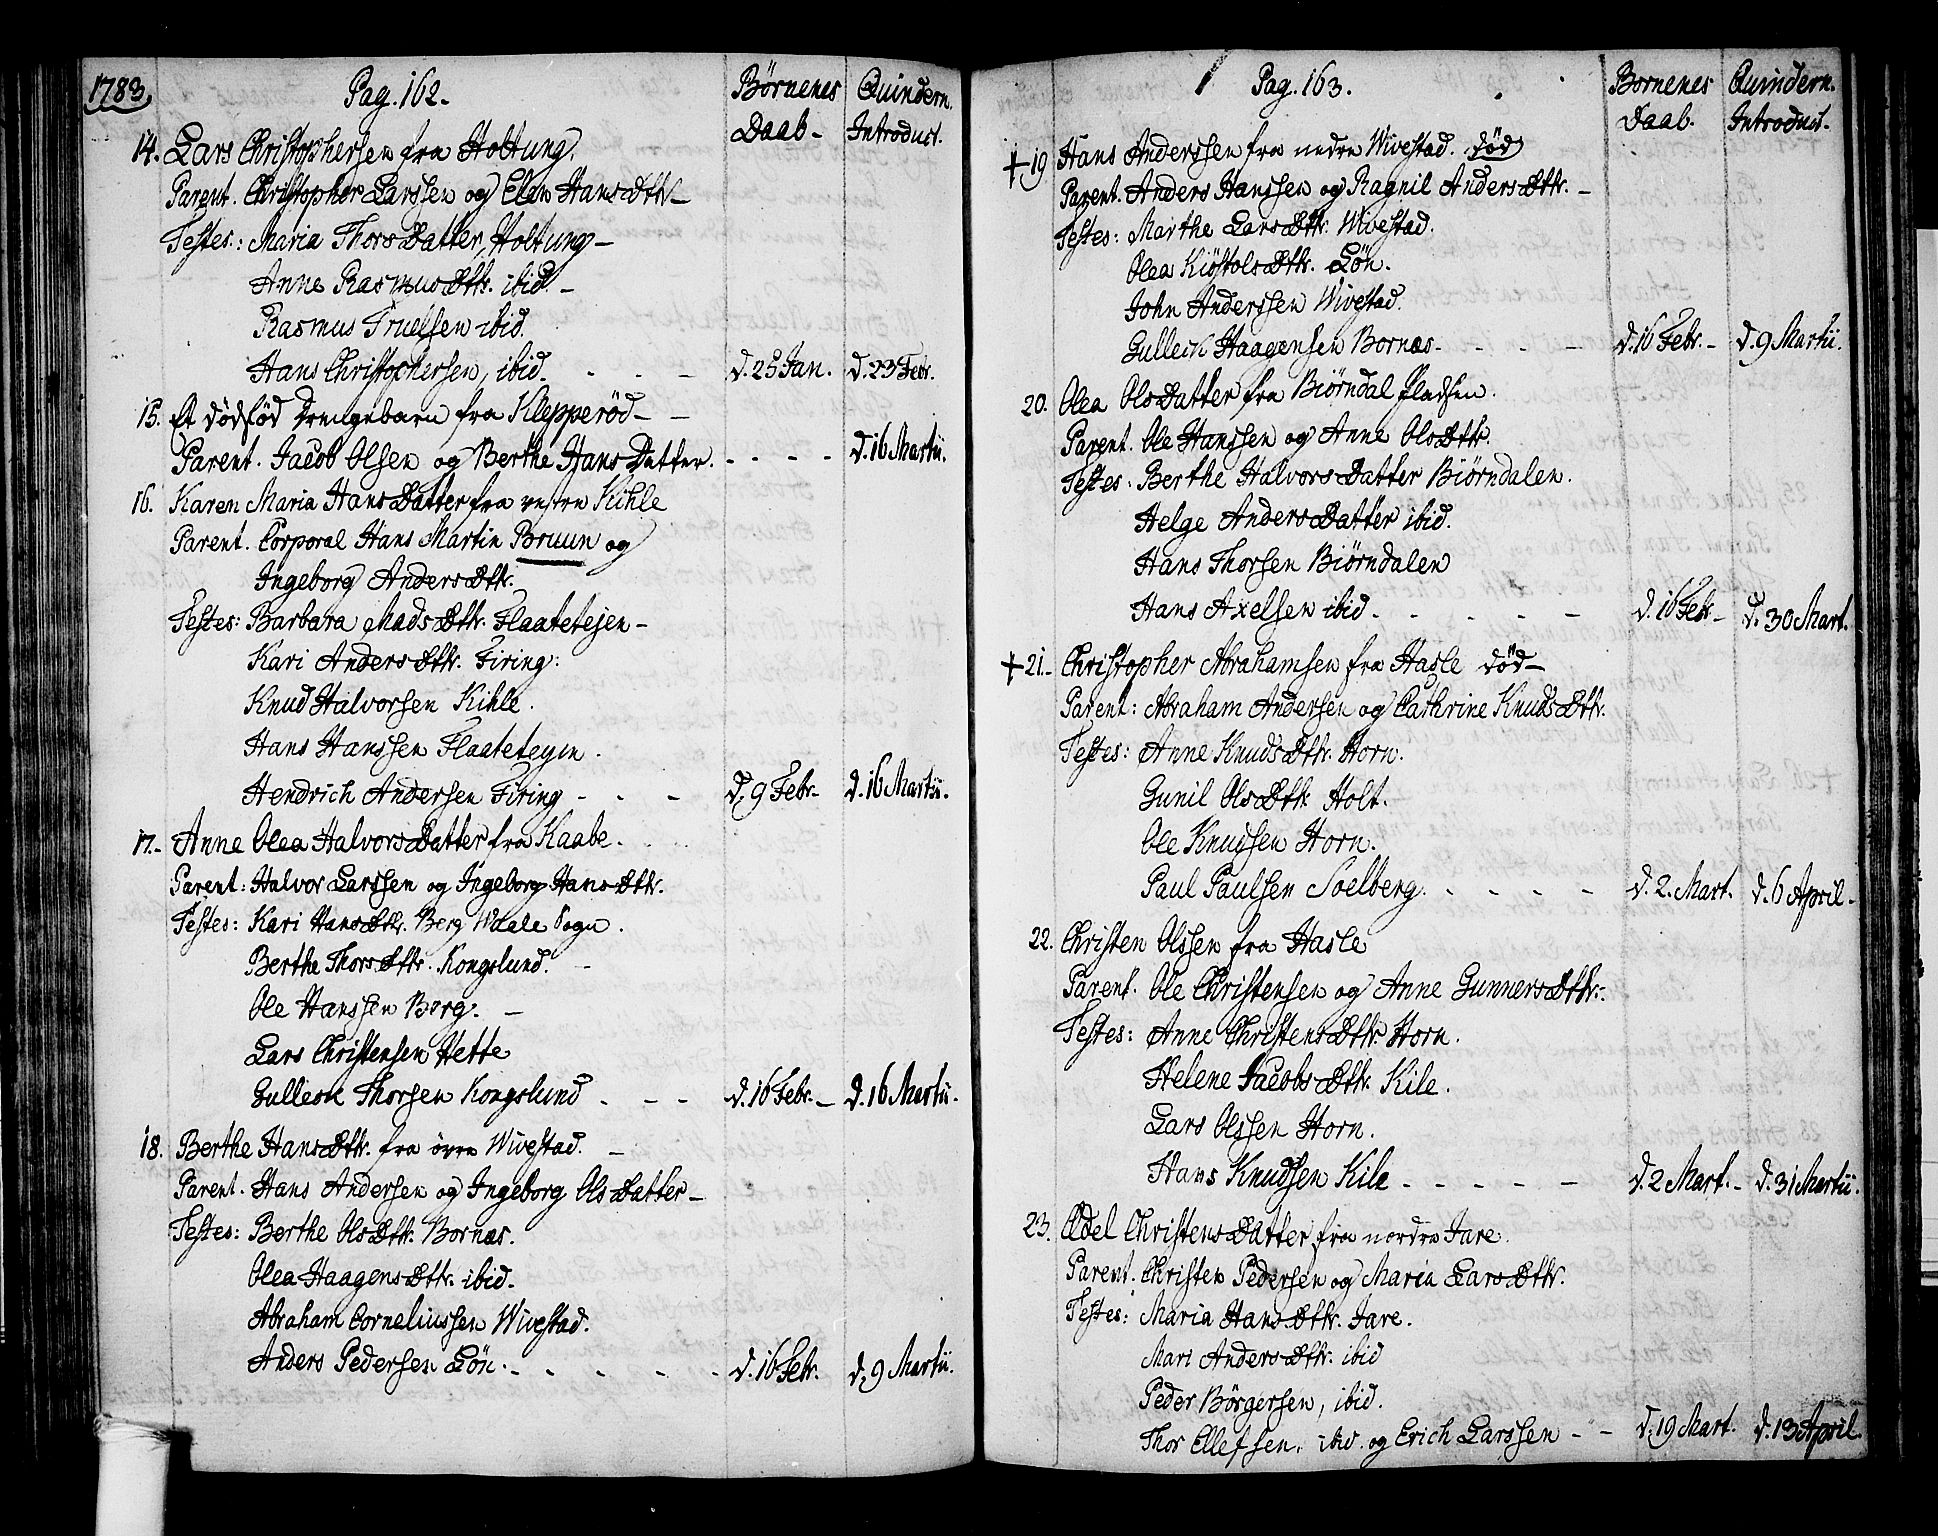 1783
Pag. 162.
Børnenes Daab-
Quindern. Introduct.
14. Lars Christophersen fra Holtung.
Parent. Christopher Larssen og Elen HansDttr-
Testes: Maria ThorsDatter, Holtung-
Anne RasmusDttr. ibid.-
Rasmus Truelsen ibid.
Hans Christophersen, ibid. - - - d. 25 Jan. d. 23 Febr.
15. Et dødfød Drengebarn fra Klepperød- -
Parent. Jacob Olsen og Berthe HansDatter. - - - - d. 16 Martii.
16. Karen Maria HansDatter fra vestre Kihle
Parent. Corporal Hans Martin Bruun og
Ingeborg AndersDttr.
Testes: Barbara MadsDttr. Flaatetejen-
Kari AndersDttr. Firing:
Knud Halvorsen Kihle.
Hans Hanssen Flaatetejen.
Hendrich Andersen Firing - - - d. 9 Febr- d. 16 Martii.
17.- Anne Olea HalvorsDatter fra Kaabe.
Parent: Halvor Larssen og Ingeborg HansDttr.
Testes: Kari HansDttr. Berg Waale Sogn.
Berthe ThorsDttr. Kongslund. -
Ole Hanssen Berg. -
Lars Christensen Hette
Gulleck Thorsen Kongslund . - - d. 16 Febr.- d. 16 Martii.
18. Berthe HansDttr. fra øvre Wivestad. -
Parent. Hans Andersen og Ingeborg OlsDatter-
Testes: Berthe OlsDttr. Bornæs.
Olea HaagensDttr. ibid-
Abraham Corneliussen Wivestad.
Anders Pedersen Løn. - - - - - d. 16 Febr. d. 9 Martii.
Pag. 163.
Børnenes Daab.
Quindern. Introduct.
† 19 Hans Anderssen fra nedre Wivestad. død
Parent. Anders Hanssen og Ragnil AndersDttr. -
Testes: Marthe LarsDttr. Wivestad.
Olea KiöstolsDttr. Løn.
John Anderssen Wivestad.
Gulleck Haagensen Bornæs- - - - - d. 16 Febr.- d. 9 Martii.
20. Olea OlsDatter fra Biørndal Pladsen.
Parent. Ole Hanssen og Anne OlsDttr.
Testes: Berthe HalvorsDatter Biørndalen.
Helge AndersDatter ibid.
Hans Thorsen Biørndalen
Hans Axelsen ibid. - - - - - d. 16 Febr- d. 30 Mart.
† 21.- Christopher Abrahamsen fra Hasle død-
Parent: Abraham Andersen og Cathrine KnudsDttr.
Testes: Anne KnudsDttr. Horn.
Gunil OlsDttr. Holt.
Ole Knudsen Horn.
Paul Paulsen Soelberg. - - - - d. 2. Mart. d. 6 April-
22. Christen Olssen fra Hasle
Parent. Ole Christensen og Anne GunnersDttr.
Testes: Anne ChristensDttr. Horn.
Helene JacobsDttr. Kile.
Lars Olssen Horn.
Hans Knudsen Kile - - - - - d. 2 Mart.- d. 31 Martii.
23. Edel ChristensDatter fra nordre Jare.
Parent. Christen Pedersen og Maria LarsDttr.
Testes: Maria HansDttr. Jare.
Mari AndersDttr. ibid
Peder Börgersen, ibid.
Thor Ellefsen, ibid. og Erich Larssen - - d. 19 Mart. d. 13 April.